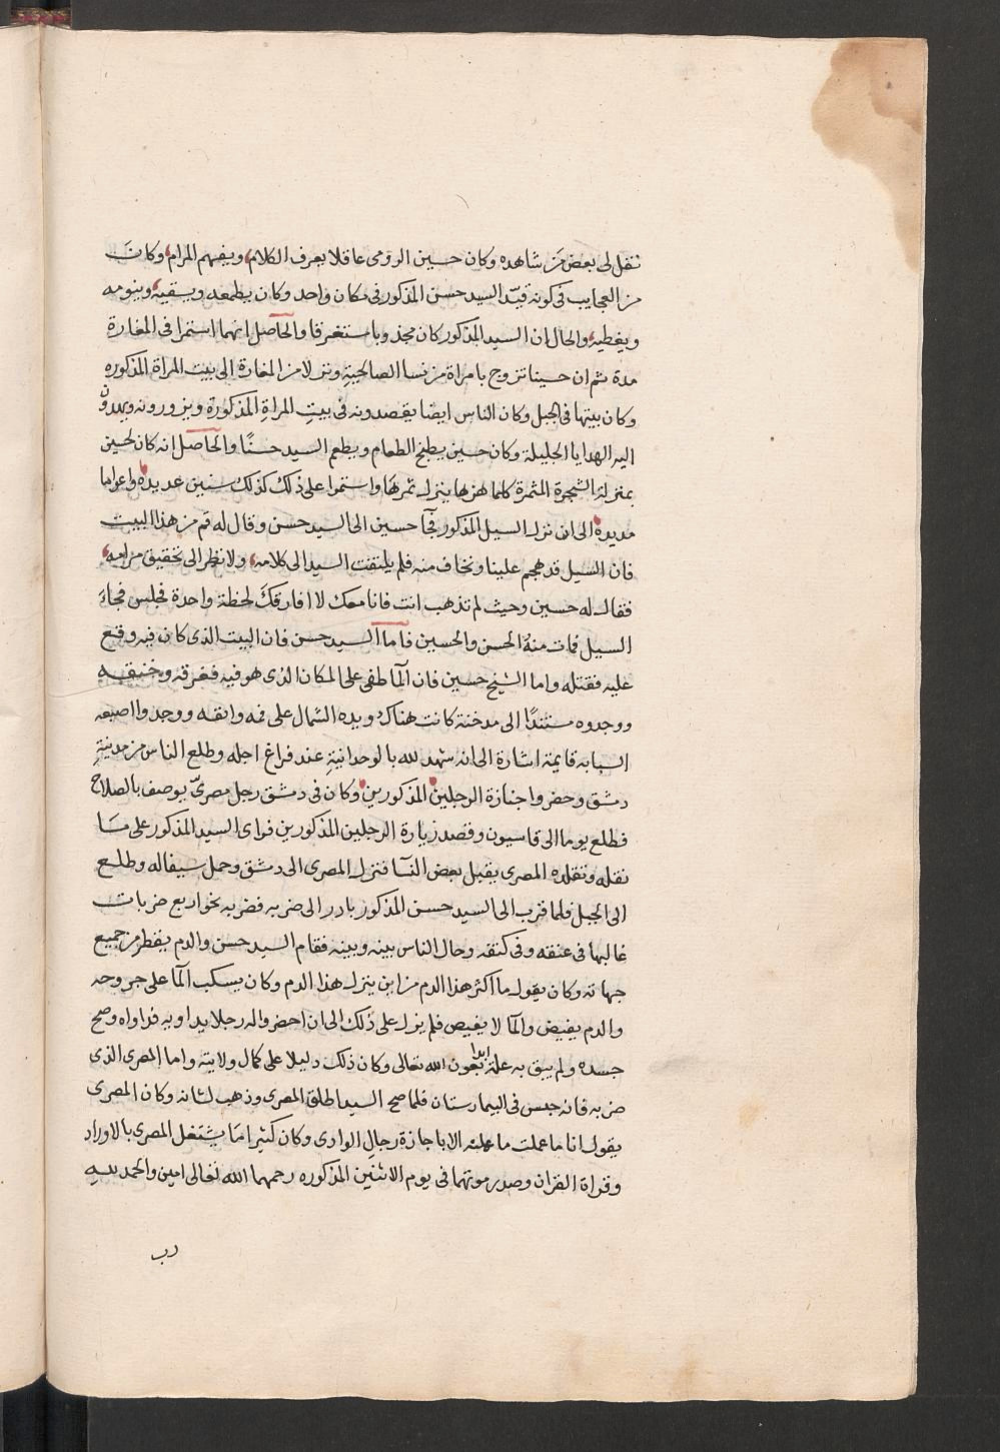 نقل لي بعض من شاهده وكان حسين الرومى عاقلا يعرف الكلام ويفهم المرام وكان
من العجايب في كونه قيد السيد حسن المذكور في مكان واحد وكان يطعمه ويسقيه وينومه
ويغطيه والحال ان السيد المذكور كان مجذوبا مستغرقا والحاصل انهما استمرا في المغارة
مدة ثم ان حسينا تزوج بامراة من نسا الصالحية ونزلا من المغارة الى بيت المراة المذكوره
وكان بيتها في الجبل وكان الناس ايضا يقصدونه في بيت المراة المذكورة ويزورونه ويهدون
اليه الهدايا الجليلة وكان حسين يطبخ الطعام ويطعم السيد حسنًا والحاصل انه كان لحسين
بمنزلة الشجرة المثمرة كلما هزها ينزل ثمرها واستمرا على ذلك كذلك سنين عديدة واعواما
مديدة الى ان نزل السيل المذكور فجآ حسين الى السيد حسن وقال له قم من هذا البيت
فان السيل قد هجم علينا ونخاف منه فلم يلتفت السيد الى كلامه ولا نظر الى تحقيق مرامه
فقال له حسين وحيث لم تذهب انت فانا معك لا افارقك لحظة واحدة فجلس فجاء
السيل فمات منه الحسن والحسين فاما السيد حسن فان البيت الذى كان فيه وقع
عليه فقتله واما الشيخ حسين فان المآ طفى على المكان الذى هو فيه فغرقه وخنقه
ووجدوه مستندًا الى مدخنة كانت هناك ويده الشمال على فمه وانفه ووجدوا اصبعه
السبابه قايمة اشارة الى انه شهد لله بالوحدانية عند فراغ اجله وطلع الناس من مدينة
دمشق وحضروا جنازة الرجلين المذكورين وكان في دمشق رجل مصرىّ يوصف بالصلاح
فطلع يوما الى قاسيون وقصد زيارة الرجلين المذكورين فراى السيد المذكور على ما
نقله ونقلده المصرى يقبل بعض النسآ فنزل المصرى الى دمشق وحمل سيفا له وطلع
الى الجبل فلما قرب الى السيد حسن المذكور بادر الى ضربه فضربه نحو اربع ضربات
غالبها في عنقه وفى كتفه وحال الناس بينه وبينه فقام السيد حسن والدم يقطر من جميع
جهاته وكان يقول ما اكثر هذا الدم من اين ينزل هذا الدم وكان يسكب المآ على جروحه
والدم يفيض والمآ لا يغيض فلم يزل على ذلك الى ان احضروا له رجلا يداويه فداواه وصح
جسده ولم يبق به علة ابدا بعون الله تعالى وكان ذلك دليلا على كمال ولايته واما المصرى الذى
ضربه فانه حبس في البيمارستان فلما صح السيد اطلق المصرى وذهب لشانه وكان المصرى
يقول انا ما عملت ما عملته الا باجازة رجال الوادى وكان كثيرا ما يشتغل المصرى بالاوراد
وقراة القران وصدر موتهما في يوم الاثنين المذكوره رحمهما الله تعالى امين والحمد لله
رب